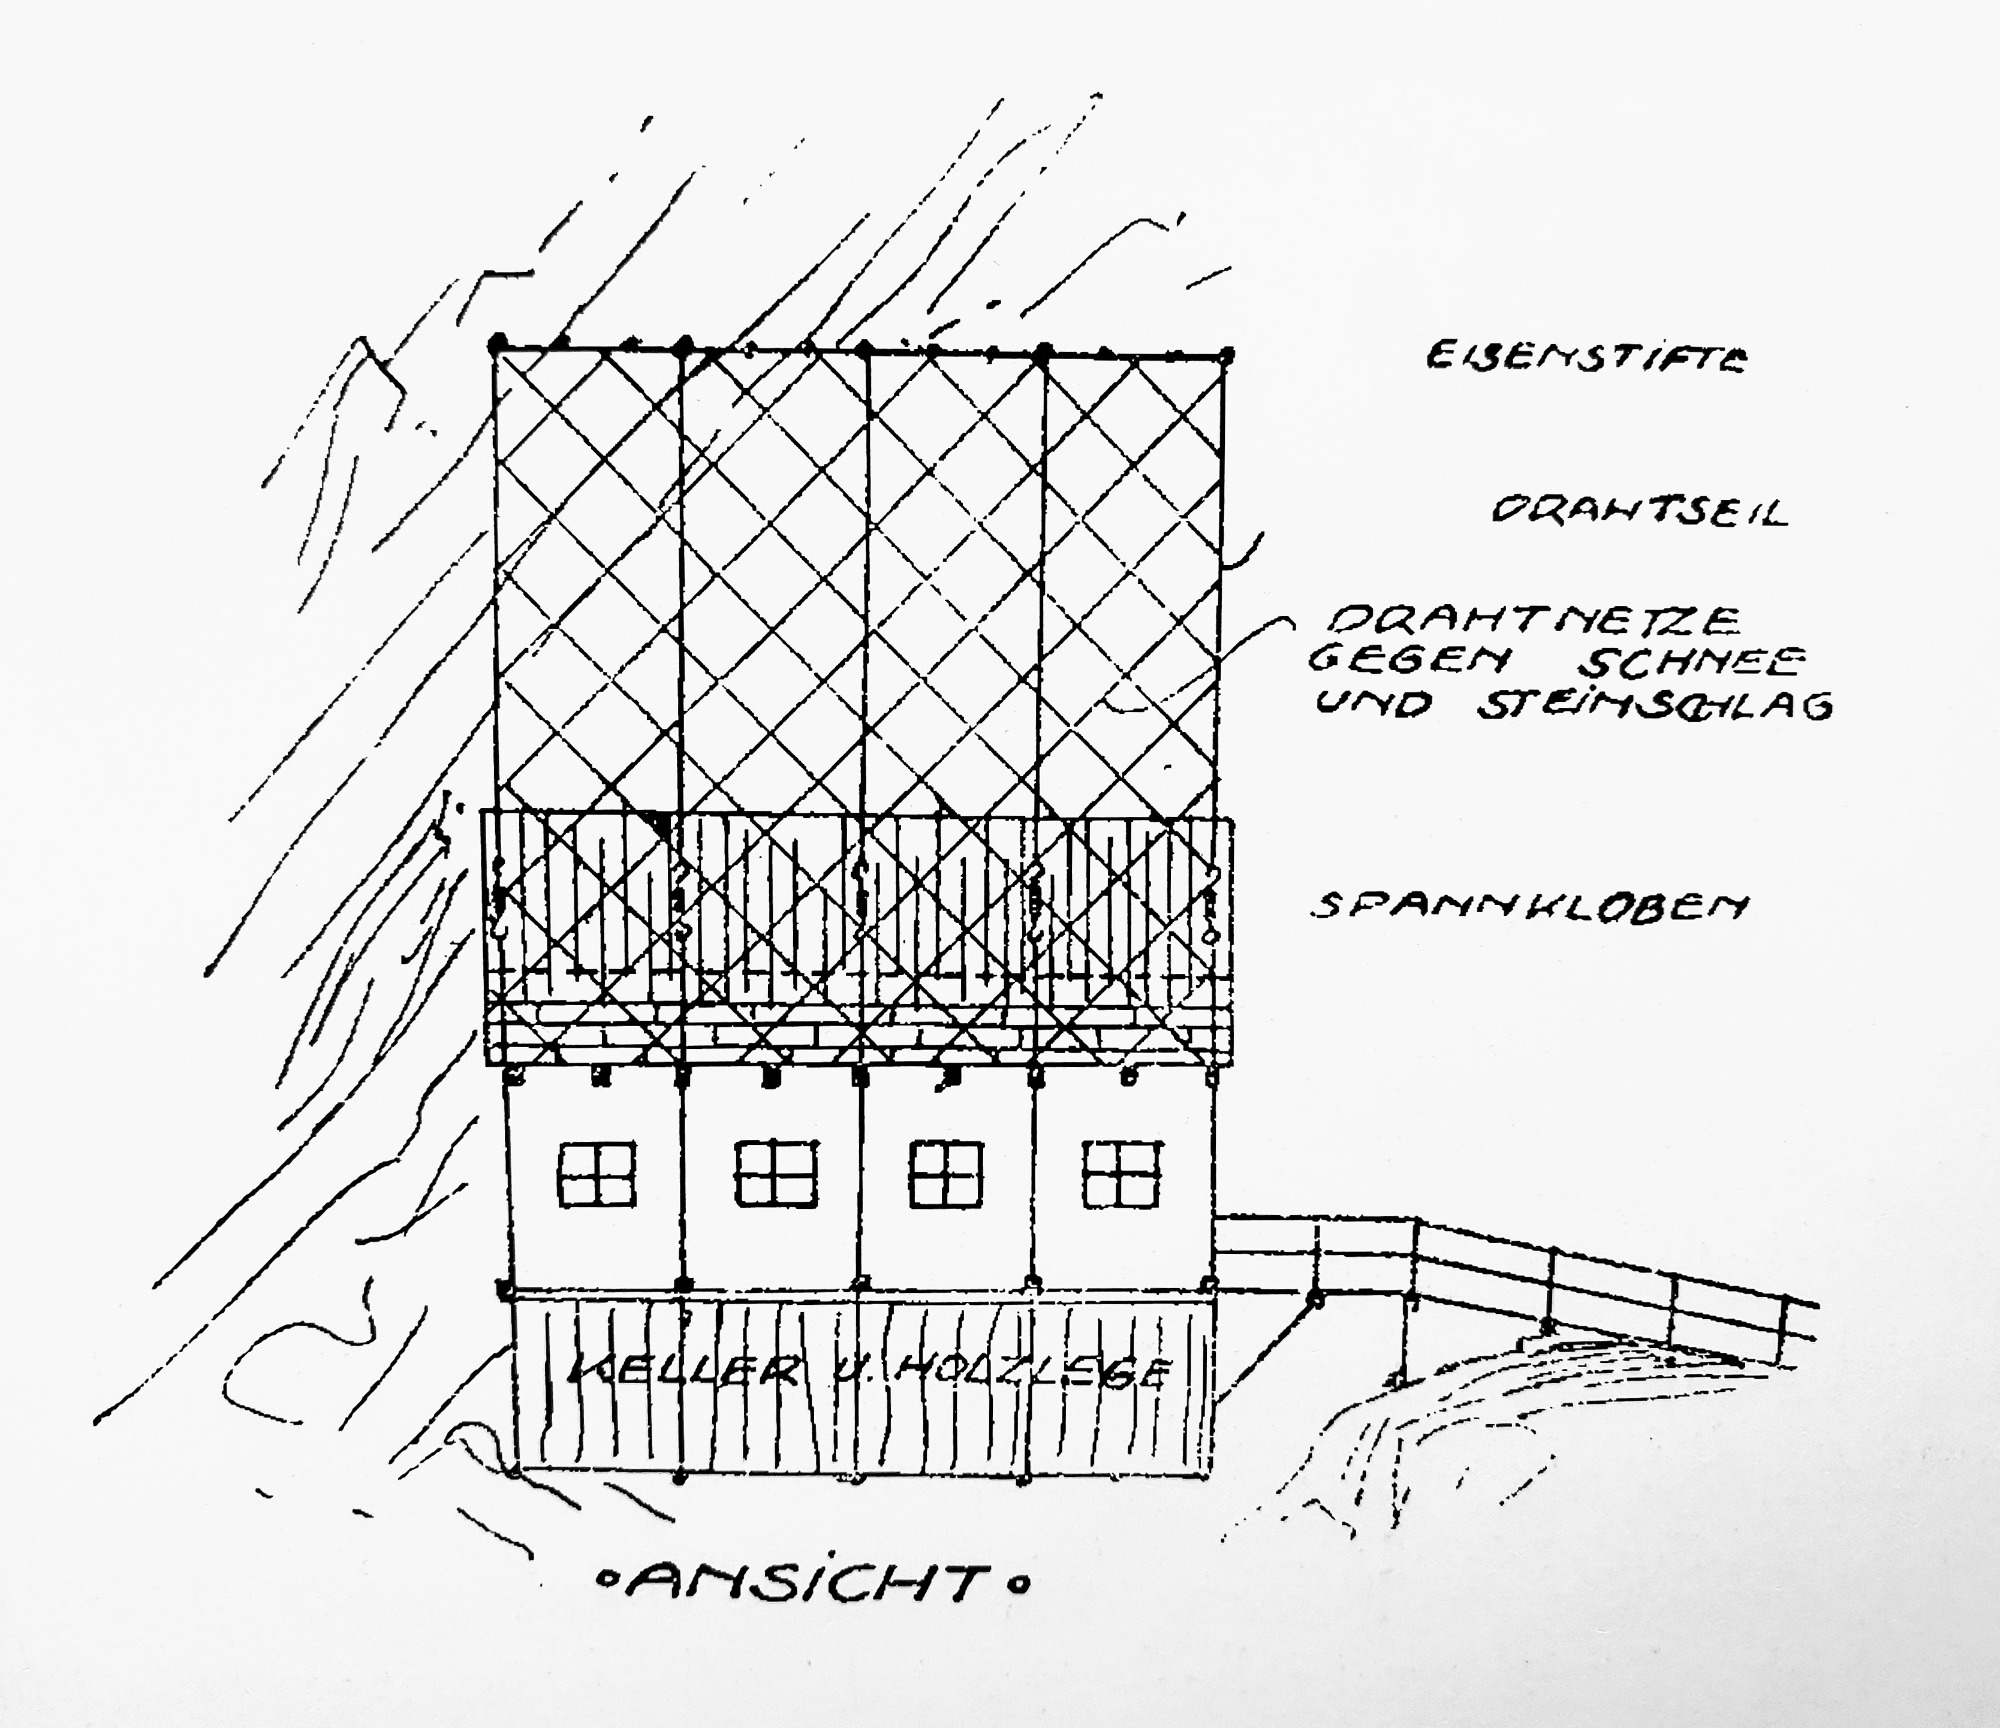 EISENSTIFTE
DRAHTSEIL
DRAHTNETZE
GEGEN SCHNEE
UND STEINSCHLAG
SPANNKLOBEN
KELLER U. HOLZLEGE
• ANSICHT •